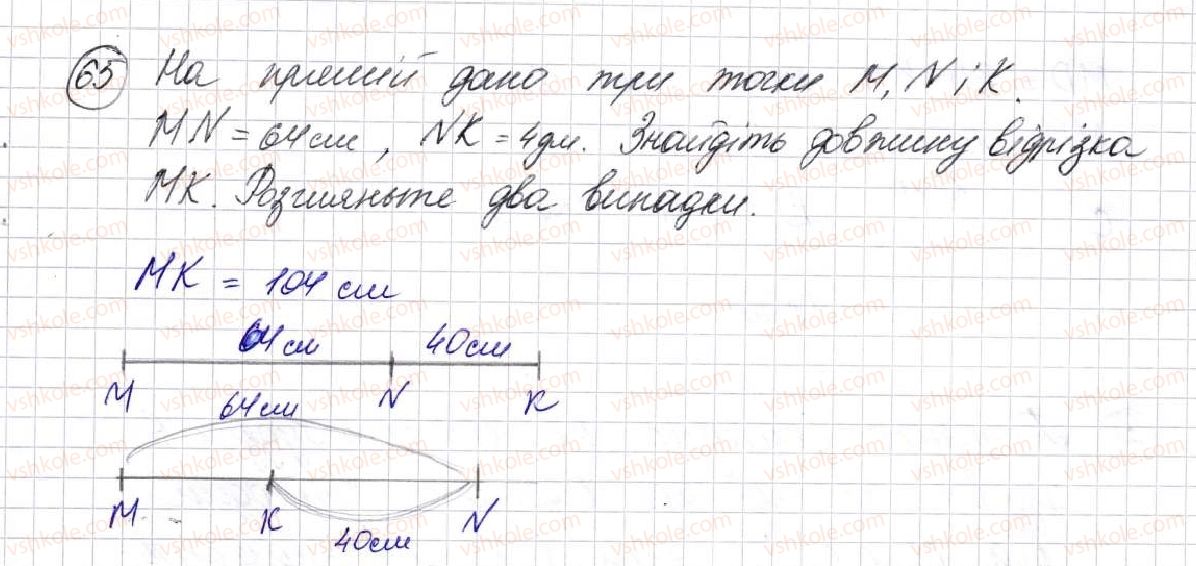 65 На прямій дано три точки M, N і K.
MN = 64 см, NK = 4 дм. Знайдіть довжину відрізка
MK. Розгляньте два випадки.
MK = 104 см
64 см 40 см
M N K
64 см
M K N
40 см
vshkole.com